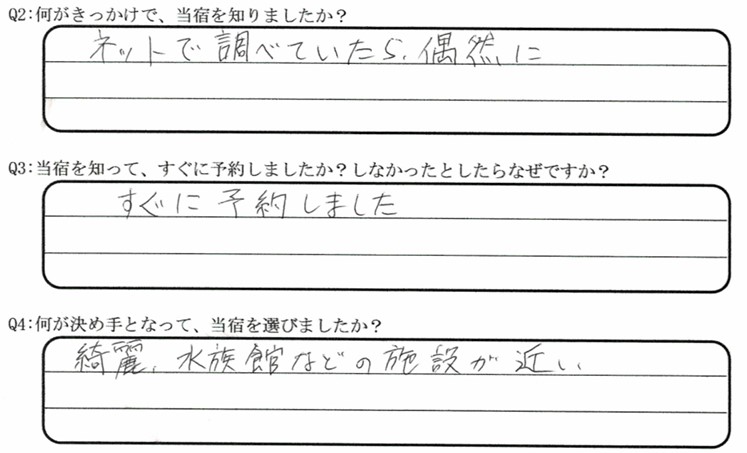 Q2:何がきっかけで、当宿を知りましたか？
ネットで調べていたら、偶然に
Q3:当宿を知って、すぐに予約しましたか？しなかったとしたらなぜですか？
すぐに予約しました
Q4:何が決め手となって、当宿を選びましたか？
綺麗、水族館などの施設が近い